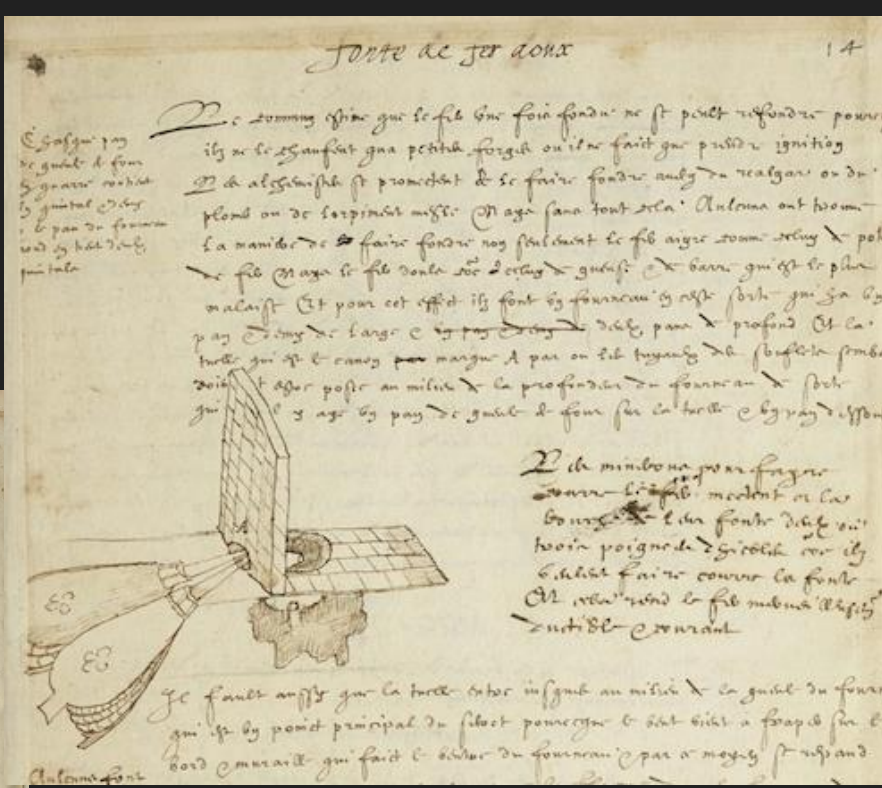 fonte de fer doux
14
Chasque pan
de gueule de four
en quarre contient
quintal & demy
le pan du fourneau
rond en tient deulx
quintals
Le commun estime que le fer une fois fondu ne se peult refondre pource
ilz ne le chaufent qua petites forges ou il ne faict que prendre ignition
Les alchemistes se promectent de le faire fondre avecq du realgar ou du
plomb ou de lorpiment mesle Mays sans tout cela Aulcuns ont trouve
la maniere de faire fondre non seulement le fer aigre comme celuy de pot
de fer Mays le fer doulx celuy de gueuse & de barre qui est le plus
malaise Et pour cet effect ilz font un fourneau en ceste sorte qui ha un
pan & demy de large & un pan & demy de deulx pans de profond Et la
tuelle qui est le canon par marque A par ou les tuyaulx des souflets
doibt estre posee au milieu de la profondeur du fourneau de sorte
qui l y aye un pan de gueule de four sur la tuelle & un pan dessoubs
A
Les minerons pour fayre
courre le fer mectent a la
de leur fonte deulx ou
trois poignees ilz
veulent faire courre la fonte
Et cela rend le fer
ductible & courant
Il fault aussy que la tuelle entre jusques au milieu de la gueule du four
qui est un poinct principal du secret pourceque le vent vient a fraper sur le
bord & muraille qui faict le ventre du fourneau & par ce moyen se respand
Aulcuns font